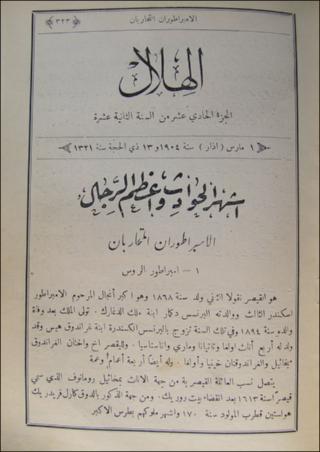 الامبراطوران المتحاربان
﴿ ٣٢٣ ﴾
الهلال
الجزء الحادي عشر من السنة الثانية عشرة
﴿ ١ مارس ( اذار ) سنة ١٩٠٤ و ١٣ ذي الحجة سنة ١٣٢١ ﴾
اشهر الحوادث واعظم الرجال
الامبراطوران المتحاربان
١ — امبراطور الروس
هو القيصر نقولا الثاني ولد سنة ١٨٦٨ وهو اكبر أنجال المرحوم الامبراطور
اسكندر الثالث ووالدته البرنسس دكمار ابنة ملك الدنمارك . تولى الملك بعد وفاة
والده سنة ١٨٩٤ وفي تلك السنة تزوج بالبرنسس الكسندرة ابنة غراندوق هيس وقد
ولد له أربع أناث اولغا وتاتيانا وماري وانستاسيا . وللقيصر اخ واختان الغراندوق
ميخائيل والغراندوقتان خينيا وأولغا . وله أيضاً أربعة أعمام وعمة
يتصل نسب العائلة القيصرية من جهة الاناث بميخائيل رومانوف الذي سمي
قيصراً سنة ١٦١٣ بعد انقضاء بيت روريك . ومن جهة الذكور بالدوق كارل فريدريك
هولستين قطرب المولود سنة ١٧٠٠ واشهر ملوكهم بطرس الاكبر